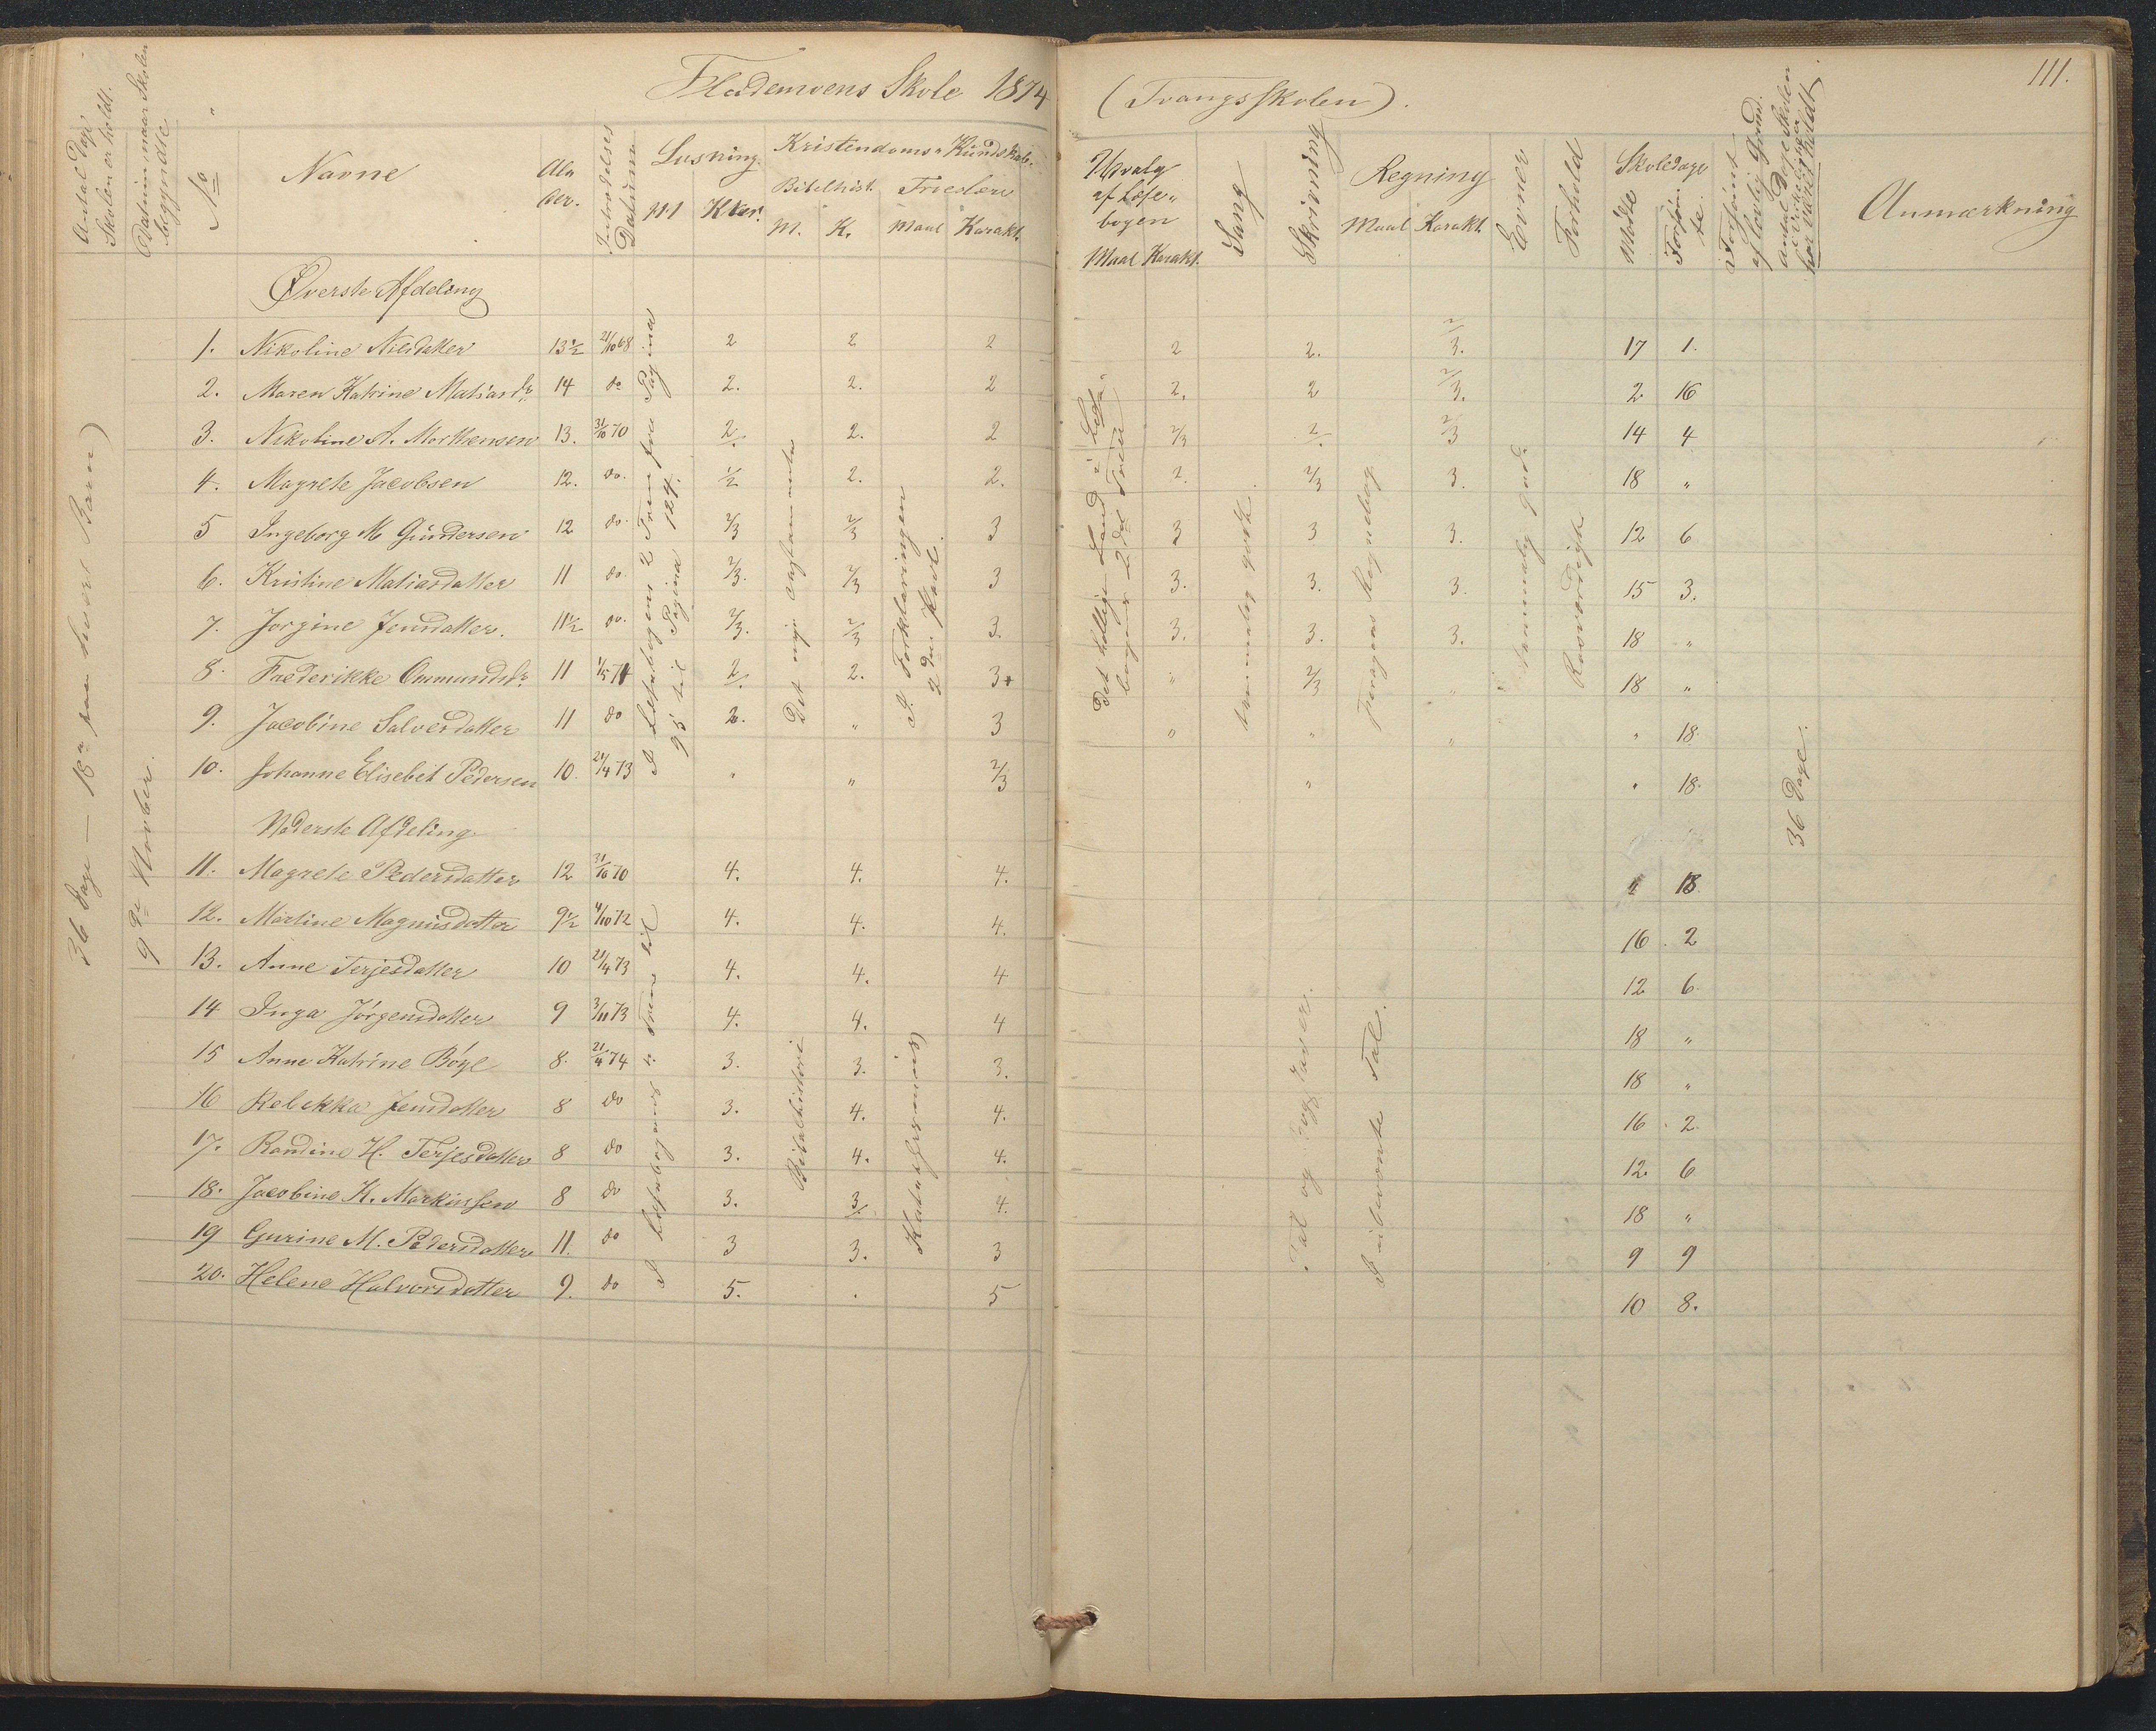 Flademoens Skole 1874 (Tvangsskolen). 111.
Antal Dage Skolen er holdt.
Datum naar Skolen begyndte
No
Navne
Alder.
Indtrædelses Datum
Læsning. M Kar.
Kristendoms Kundskab. Bibelhist. M. K. Troeslære Maal Karakt.
Udvalg af Læsebogen Maal Karakt.
Sang
Skrivning
Regning Maal Karakt.
Evner
Forhold
Skoledage Mødte Forsømte
Forsømt af lovlig Grund.
Antal Dage Skolen i Virkeligheden har været holdt
Anmærkning
36 Dage — 18 paa hvert Barn)
9de Novber.
Øverste Afdeling
1. Nikoline Nilsdatter 13½ 21/10 68 2 2 2 2 2. 2/3. 17 1.
2. Maren Katrine Matiasdr. 14 do 2. 2. 2 2. 2 2/3. 2 16
3. Nikoline A. Morthensen 13. 31/10 70 2/. 2. 2 2/3 2/. 2/3 14 4
4. Magrete Jacobsen 12. do. ½ 2. 2. 2. 2/3 3. 18 "
5 Ingeborg M Gundersen 12 do. 2/3 2/3 3 3 3 3. 12 6
6. Kristine Matiasdatter 11 do 2/3. 2/3 3 3. 3. 3. 15 3.
7. Jorgine Jensdatter. 11½ do. 2/3. 2/3 3. 3. 3. 3. 18 "
8. Frederikke Ommundsdr. 11 1/5 71 2/. 2. 3+ " 2/3 " 18 "
9. Jacobine Salvesdatter 11 do 2. " 3 " " " " 18.
10. Johanne Elisebét Pedersen 10. 21/4 73 " " 2/3 " " 18.
I Læsebogens 2 Trin fra Pagina 95 til Pagina 124.
Det nye Testamente
I Forklaringen 2den Part.
Det hellige Land i Læsebogens 2det Trin
temmelig godt.
Regnebog
temmelig gode
Rosværdigt
36 Dage.
Nederste Afdeling
11. Magrete Pedersdatter 12 31/10 70 4. 4. 4. " 18
12. Martine Magnusdatter 9½ 4/10 72 4. 4. 4. 16. 2
13. Anne Terjesdatter 10 21/4 73 4. 4. 4 12 6.
14 Inga Jörgensdatter 9 3/11 73 4. 4. 4 18 "
15 Anne Katrine Böye 8. 21/4 74 3. 3. 3. 18 "
16 Rebekka Jensdatter 8 do 3. 4. 4. 16. 2.
17. Randine H. Terjesdatter 8 do 3. 4. 4. 12. 6
18. Jacobine K. Markussen 8 do 3. 3/. 4. 18 "
19 Gurine M. Pedersdatter 11. do 3 3. 3 9 9
20. Helene Halvorsdatter 9. do 5. . 5 10 8.
I Læsebogens 1. Trin til
Bibelhistorie
Katekismus
Tal og Bogstaver.
I ubenævnte Tal.